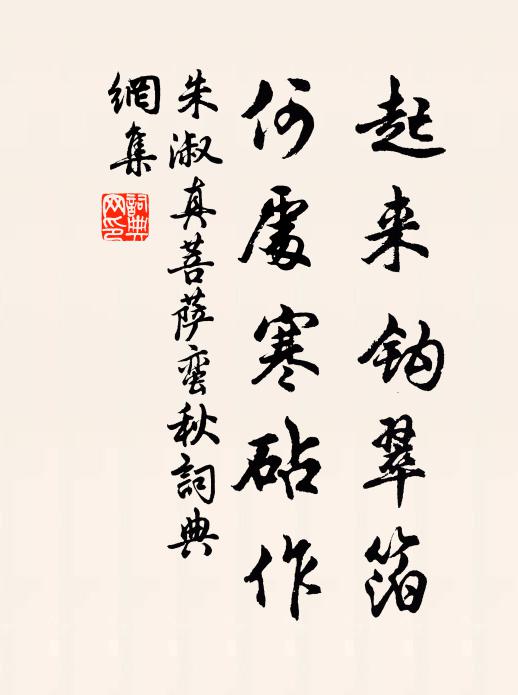 起来鈎翠箔
何處寒砧作
朱淑真菩薩蛮秋詞典
網集
詞典网印